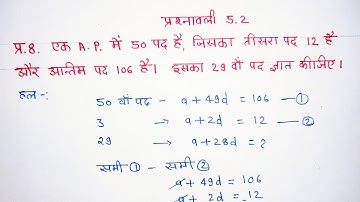 प्रश्नावली 5.2
प्र.8. एक A.P. में 50 पद है, जिसका तीसरा पद 12 है
और अन्तिम पद 106 है। इसका 29 वाँ पद ज्ञात कीजिए।
हल -:
50 वाँ पद - a + 49d = 106 — ①
3 → a + 2d = 12 — ②
29 → a + 28d = ?
समी ① - समी ②
a + 49d = 106
a + 2d = 12